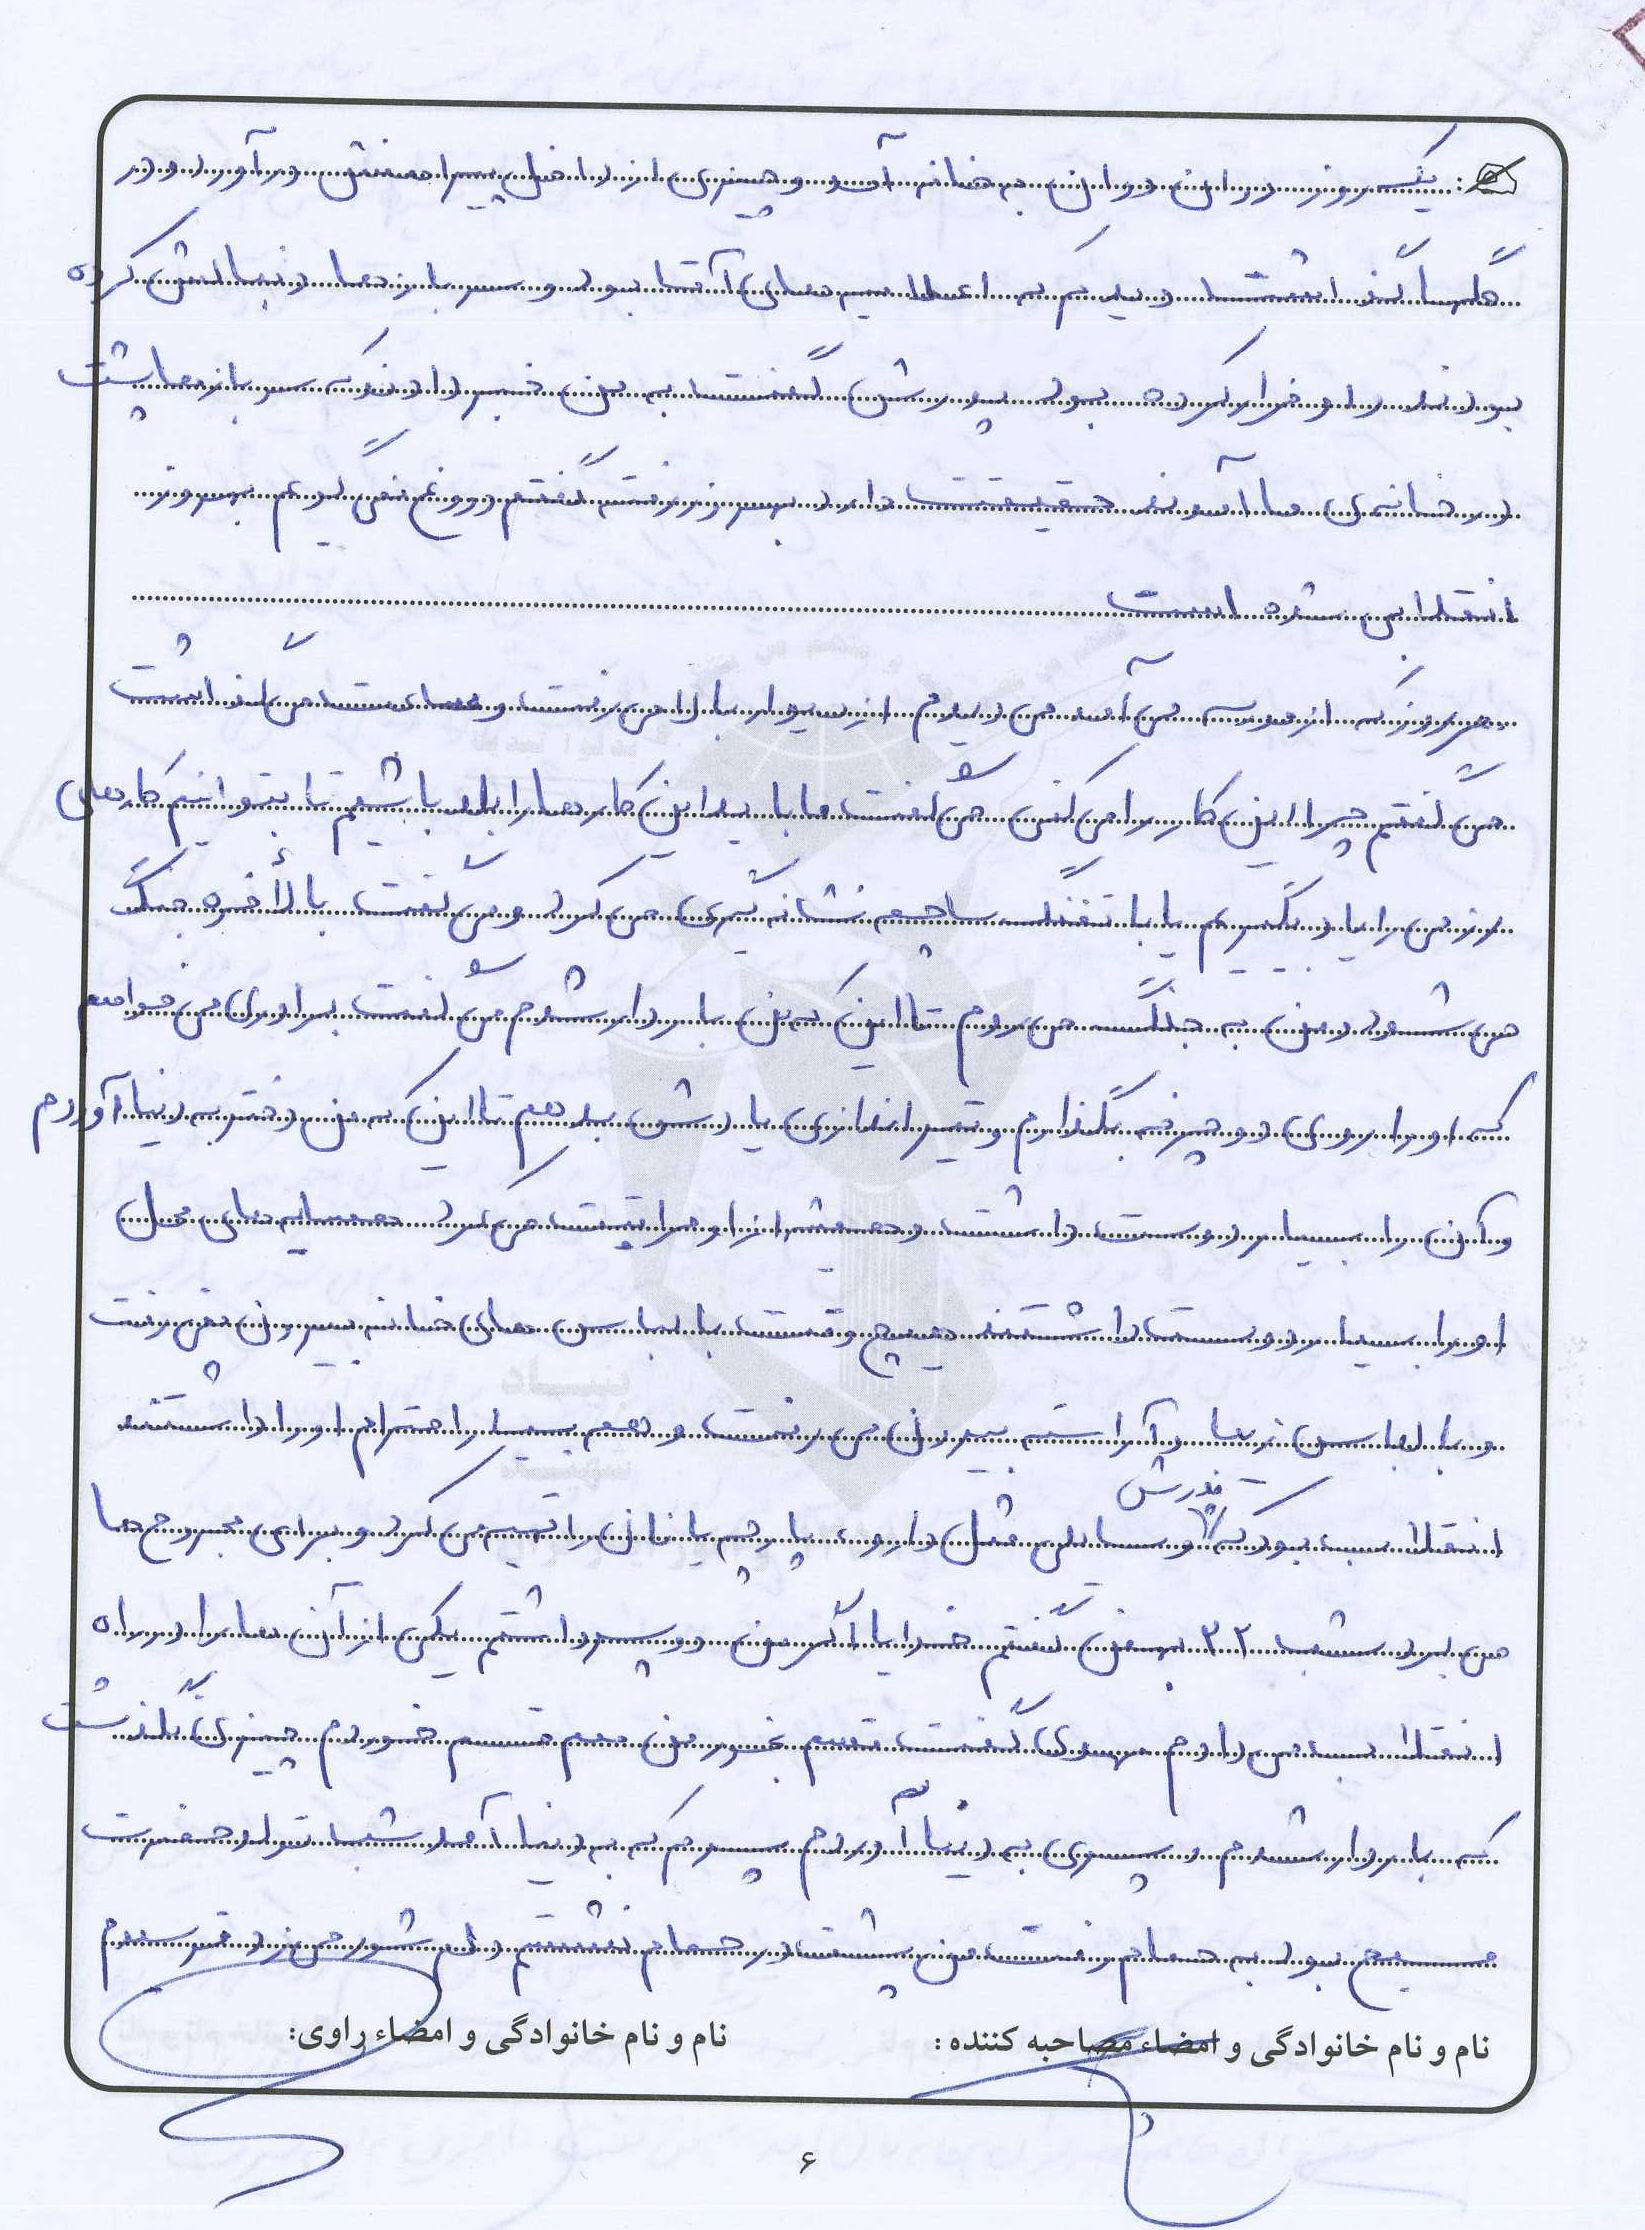 یک روز دوان دوان به خانه آمد و چیزی از داخل پیراهنش درآورد و در
گلها گذاشت دیدم که اعلامیه های آقا بود و سربازها دنبالش کرده
بودند و او فرار کرده بود پدرش گفت به من خبر دادند که سربازها پشت
در خانه ی ما آمدند حقیقت دارد بهروز رفته گفتم دروغ نمی گویم بهروز
انقلابی شده است
هر روز که از مدرسه می آمد می دیدم از دیوار بالا می رفت و ساعت می گذاشت
می گفتم چرا این کار را می کنی می گفت ما باید این کارها را بلد باشیم تا بتوانیم کارهای
رزمی را یاد بگیریم یا با تفنگ ساچمه نشانه گیری می کرد و می گفت بالأخره جنگ
می شود و من به جنگ می روم تا این که من باردار شدم می گفت برادری می خواهم
که او را روی دوچرخه بگذارم و تیراندازی یادش بدهم تا این که من دختر به دنیا آوردم
و آن را بسیار دوست داشت و همیشه از او مراقبت می کرد همسایه های محل
او را بسیار دوست داشتند هیچ وقت با لباس های خانه بیرون نمی رفت
و با لباس زیبا و آراسته بیرون می رفت و همه بسیار احترام او را داشتند
انقلاب بود که پدرش وسایلی مثل دارو، پارچه یا نان را تهیه می کرد و برای مجروح ها
می برد شب ۲۲ بهمن گفتم خدایا اگر من دو پسر داشتم یکی از آن ها را در راه
انقلاب می دادم مهدی گفت قسم بخور من هم قسم خوردم چیزی نگذشت
که باردار شدم و پسری به دنیا آوردم پسرم که به دنیا آمد شب تولد حضرت
مسیح بود به حمام رفت من پشت در حمام نشستم دلم شور می زد ترسیدم
نام و نام خانوادگی و امضاء مصاحبه کننده : نام و نام خانوادگی و امضاء راوی:
۶